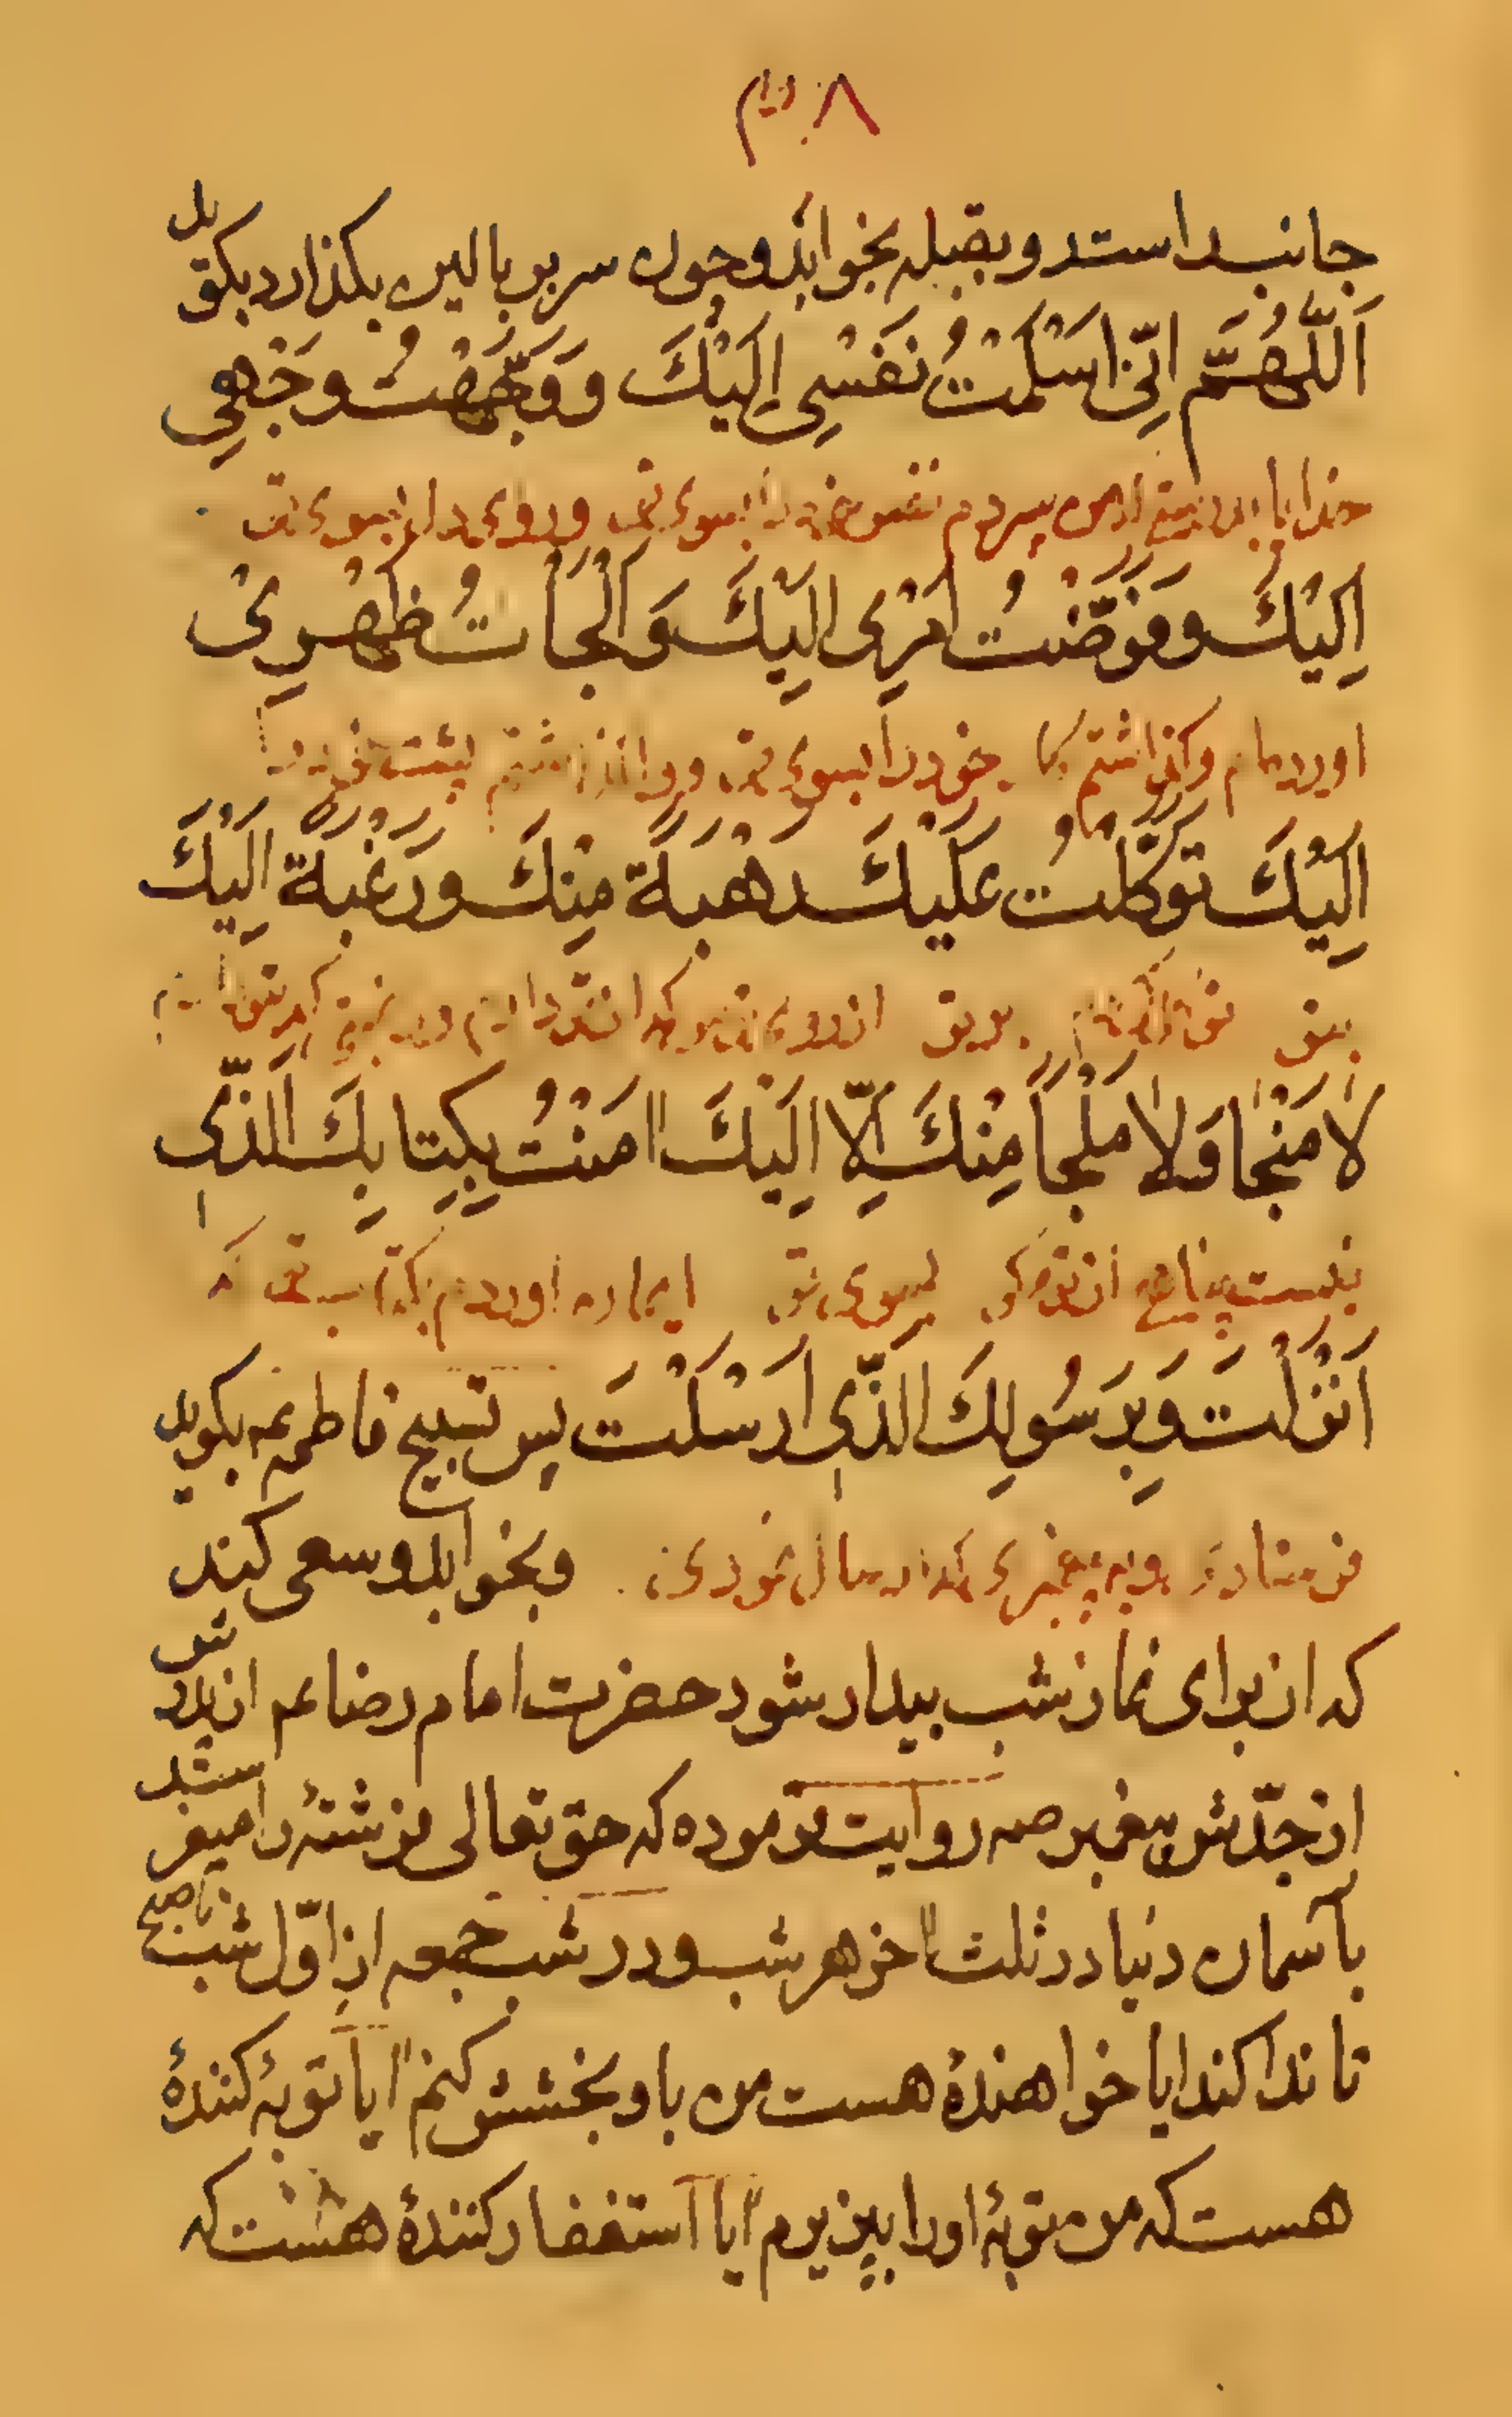 ٨
جانب راست رو بقبله بخوابد و چون سر بر بالین بکذارد بکوید
اَللّهُمَّ اِنّی اَسْلَمْتُ نَفَسْی اِلَیْکَ وَوَجَّهْتُ وَجْهِی
خدایا بدرستیکه من سپردم نفس خود را بسوی تو و روی را بسوی تو
اِلَیْکَ وَفَوَّضْتُ اَمْری اِلَیْکَ وَاَلْجَاْتُ ظَهْریْ
اورده‌ام و کذاشتم کا خود را بسوی تو و پشت خود را
اِلَیْکَ تَوَکَّلْتُ عَلَیْکَ رَهْبَةً مِنْکَ وَرَغْبَةً اِلَیْکَ
بتو بر تو از روی
لا مَنْجا وَلا مَلْجَاَ مِنْکَ اِلّا اِلَیْکَ امَنْتُ بِکِتابِکَ الَّذی
نیست پناهی از تو مکر بسوی تو ایمان اوردم بکتاب تو که
اَنْزَلْتَ وَبِرَسُولِکَ الَّذی اَرْسَلْتَ پس تسبیح فاطمه ع بکوید
فرستادی و به پیغمبری که ارسال نمودی و بخوابد و سعی کند
که از برای نماز شب بیدار شود حضرت امام رضا عم از پدرش
از جدّش پیغمبر صه روایت فرموده که حق تعالی فرشتۀ را میفرستد
بآسمان دنیا در ثلث اخر هر شب و در شب جمعه از اوّل شب تا صبح
تا ندا کند ایا خواهندۀ هست من باو بخشش کنم ایا توبۀ کنندۀ
هست که من توبۀ اورا بپذیرم ایا استغفار کنندۀ هست که